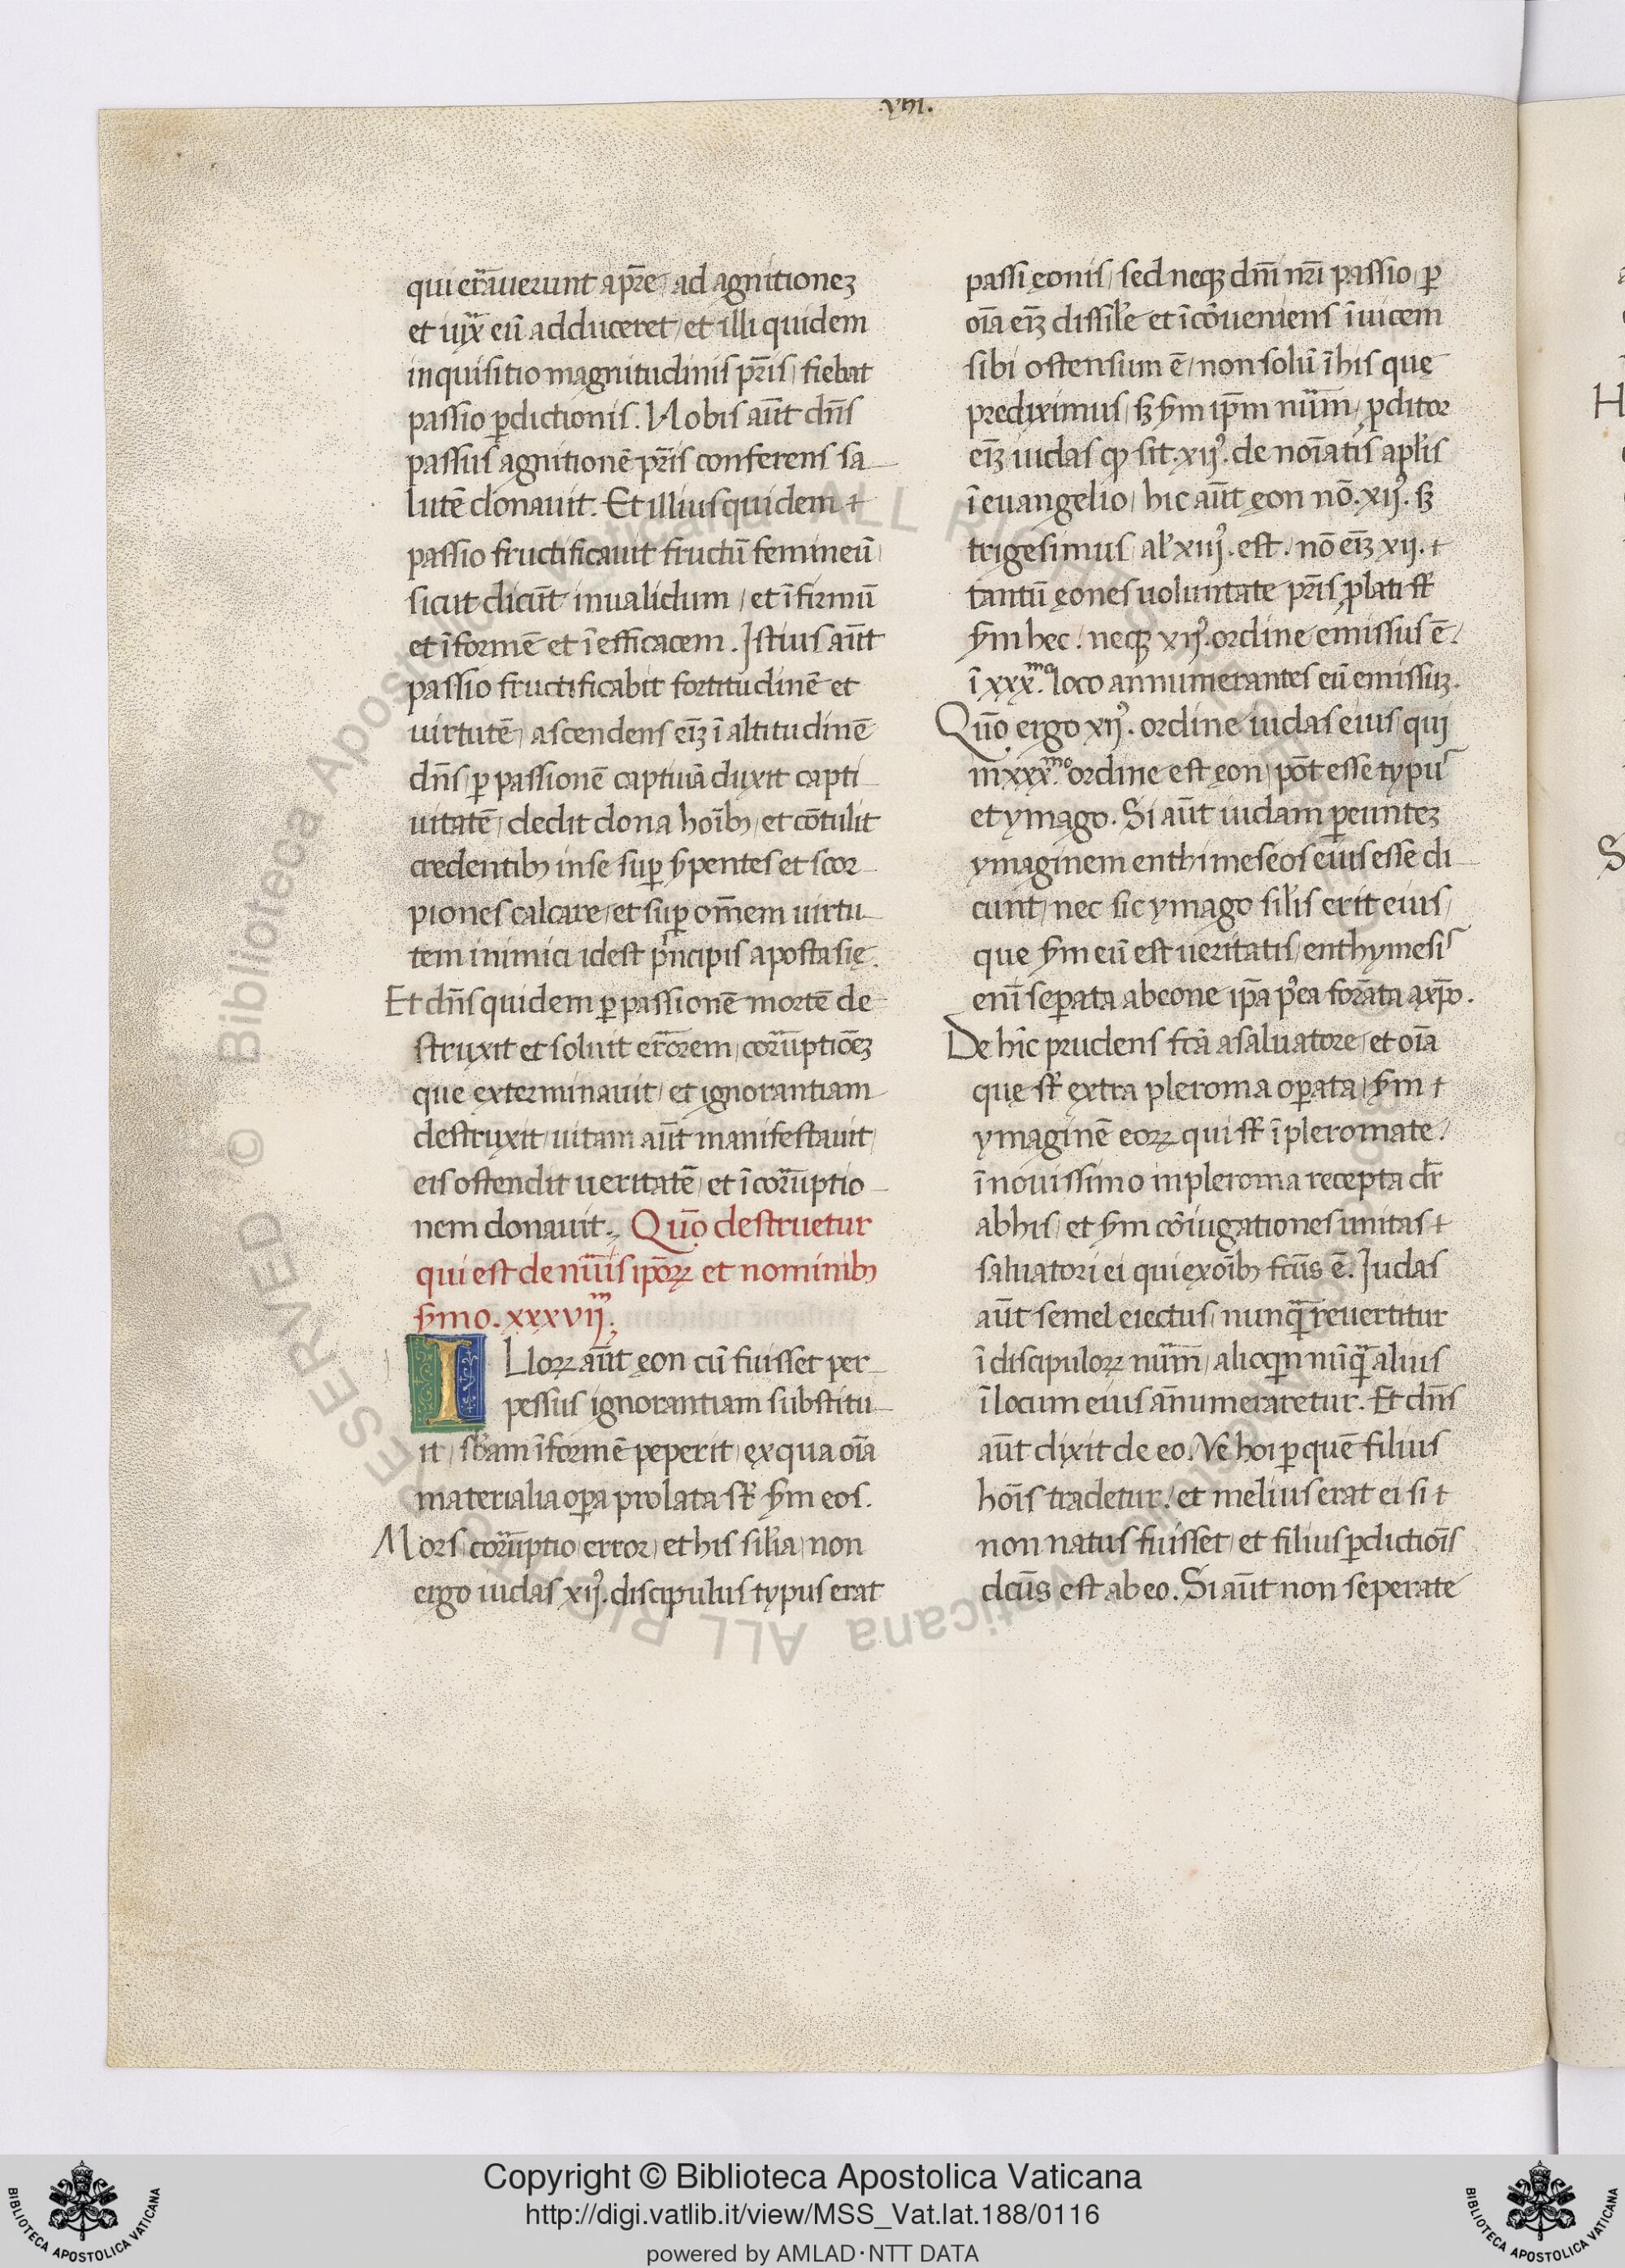 .VIII.
qui erraverunt a pr̄e, ad agnitionez
et iuxͣ eū adduceret, et illi quidem
inquisitio magnitudinis pr̄is, fiebat
passio ꝑdictionis. Nobis aūt dn̄s
passus agnitionē pr̄is conferens sa-
lutē donauit. Et illius quidem
passio fructificauit fructū femineū,
sicut dicūt inualidum, et īfirmū
et īformē et īefficacem. Istius aūt
passio fructificabit fortitudinē et
uirtutē, ascendens eīꝫ ī altitudinē
dn̄s, ꝑ passionē captiuā duxit capti-
uitatē, dedit dona hoīb₉, et cōtulit
credentib₉ in se suꝑ ẜpentes et scor-
piones calcare, et suꝑ om̄em uirtu-
tem inimici idest pⁱncipis apostasię.
Et dn̄s quidem ꝑ passionē mortē de-
struxit et soluit errorem, corruptiōeꝫ
que exterminauit, et ignorantiam
destruxit, uitam aūt manifestauit,
eis ostendit ueritatē, et ī corruptio-
nem donauit. Quō destruetur
qui est de nūis ipōꝝ et nominib₉
ẜmo. xxxvijᵐ.
ILloꝝ aūt ęon cū fuisset per-
pessus ignorantiam substitu-
it, sb̄am īformē peperit, ex qua oīa
materialia oꝑa prolata sƚ ẜm eos.
Mors, corruptio, error, et his sil̄ia, non
ergo iudas xij⁹. discipulus typus erat
passi ęonis, sed neqꝫ dn̄i nr̄i passio, ꝑ
oīa eīꝫ dissil̄e et īcōueniens īuicem
sibi ostensum ē, non solū ī his quę
prediximus, sꝫ ẜm ip̄m nūm, ꝓditor
eīꝫ iudas qꝫ sit .xij⁹. de noīatis apl̄is
ī euangelio, hic aūt ęon nō .xij⁹. sꝫ
trigesimus, al̄ xiij⁹. est. nō eīꝫ xij.
tantū ęones uoluntate pr̄is ꝓlati sƚ
ẜm hec. neqꝫ xij⁹. ordine emissus ē.
ī xxx.ᵐᵒ loco annumerantes eū emissuꝫ.
Quō ergo xij⁹. ordine iudas eius qui
in xxx.ᵐᵒ ordine est ęon, pōt esse typuˢ
et ymago. Si aūt iudam ꝑeunteꝫ
ymaginem enthimeseos eius esse di-
cunt, nec sic ymago sil̄is erit eius,
que ẜm eū est ueritatis, enthymesiˢ
enī seꝑata ab eone ip̄a p⁹ea formata a xp̄o.
De hīc prudens fc̄a a saluatore, et oīa
que sƚ extra pleroma oꝑata, ẜm
ymaginē eoꝝ qui sƚ ī pleromate.
ī nouissimo in pleroma recepta dr̄
ab his, et ẜm cōiugationes unitas
saluatori ei qui ex oīb₉ fc̄us ē. Iudas
aūt semel eiectus, nunqͣ reuertitur
ī discipuloꝝ nūm, alioqn nūqͣ alius
ī locum eius an̄umeraretur. Et dn̄s
aūt dixit de eo. Ve hoi ꝑ quē filius
hoīs tradetur. et melius erat ei si
non natus fuisset, et filius ꝑdictioīs
dc̄us est ab eo. Si aūt non seperate
Copyright © Biblioteca Apostolica Vaticana
http://digi.vatlib.it/view/MSS_Vat.lat.188/0116
powered by AMLAD·NTT DATA